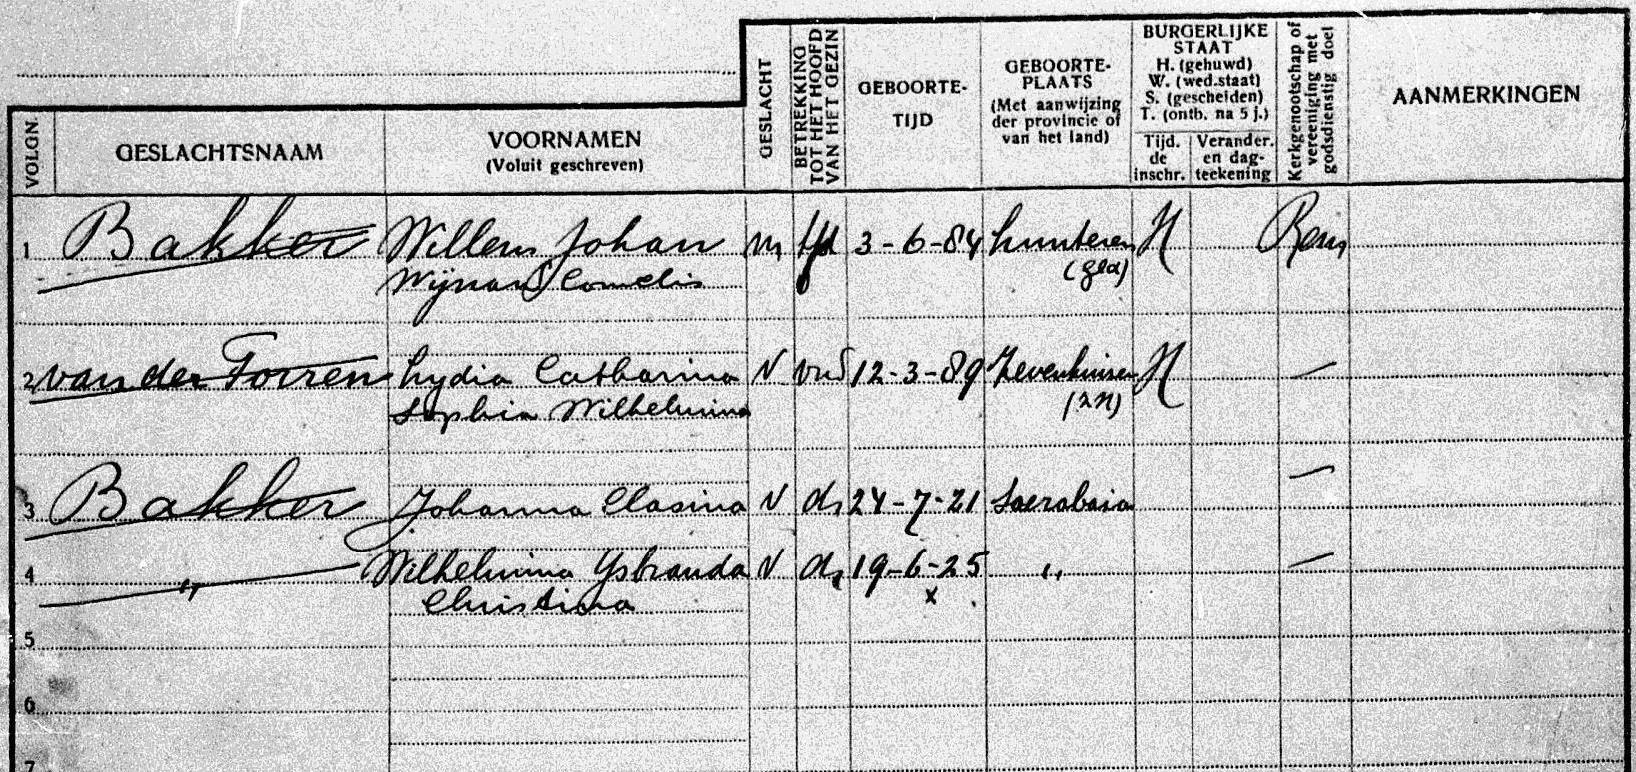 VOLGN.
GESLACHTSNAAM
VOORNAMEN
(Voluit geschreven)
GESLACHT
BETREKKING
TOT HET HOOFD
VAN HET GEZIN
GEBOORTE-
TIJD
GEBOORTE-
PLAATS
(Met aanwijzing
der provincie of
van het land)
BURGERLIJKE
STAAT
H. (gehuwd)
W. (wed.staat)
S. (gescheiden)
T. (ontb. na 5 j.)
Tijd.
de
inschr.
Verander.
en dag-
teekening
Kerkgenootschap of
vereeniging met
godsdienstig doel
AANMERKINGEN
1 Bakker Willem Johan m hfd 3-6-84 Lunteren H Rem
Wijnand Cornelis (Gld)
2 van der Torren Lydia Catharina V 12-3-89 Zevenhuizen H —
Sophia Wilhelmina (ZH)
3 Bakker Johanna Clasina V dr 24-7-21 Soerabaia —
4 " Wilhelmina Ysbranda V dr 19-6-25 " —
Christina x
5
6
7